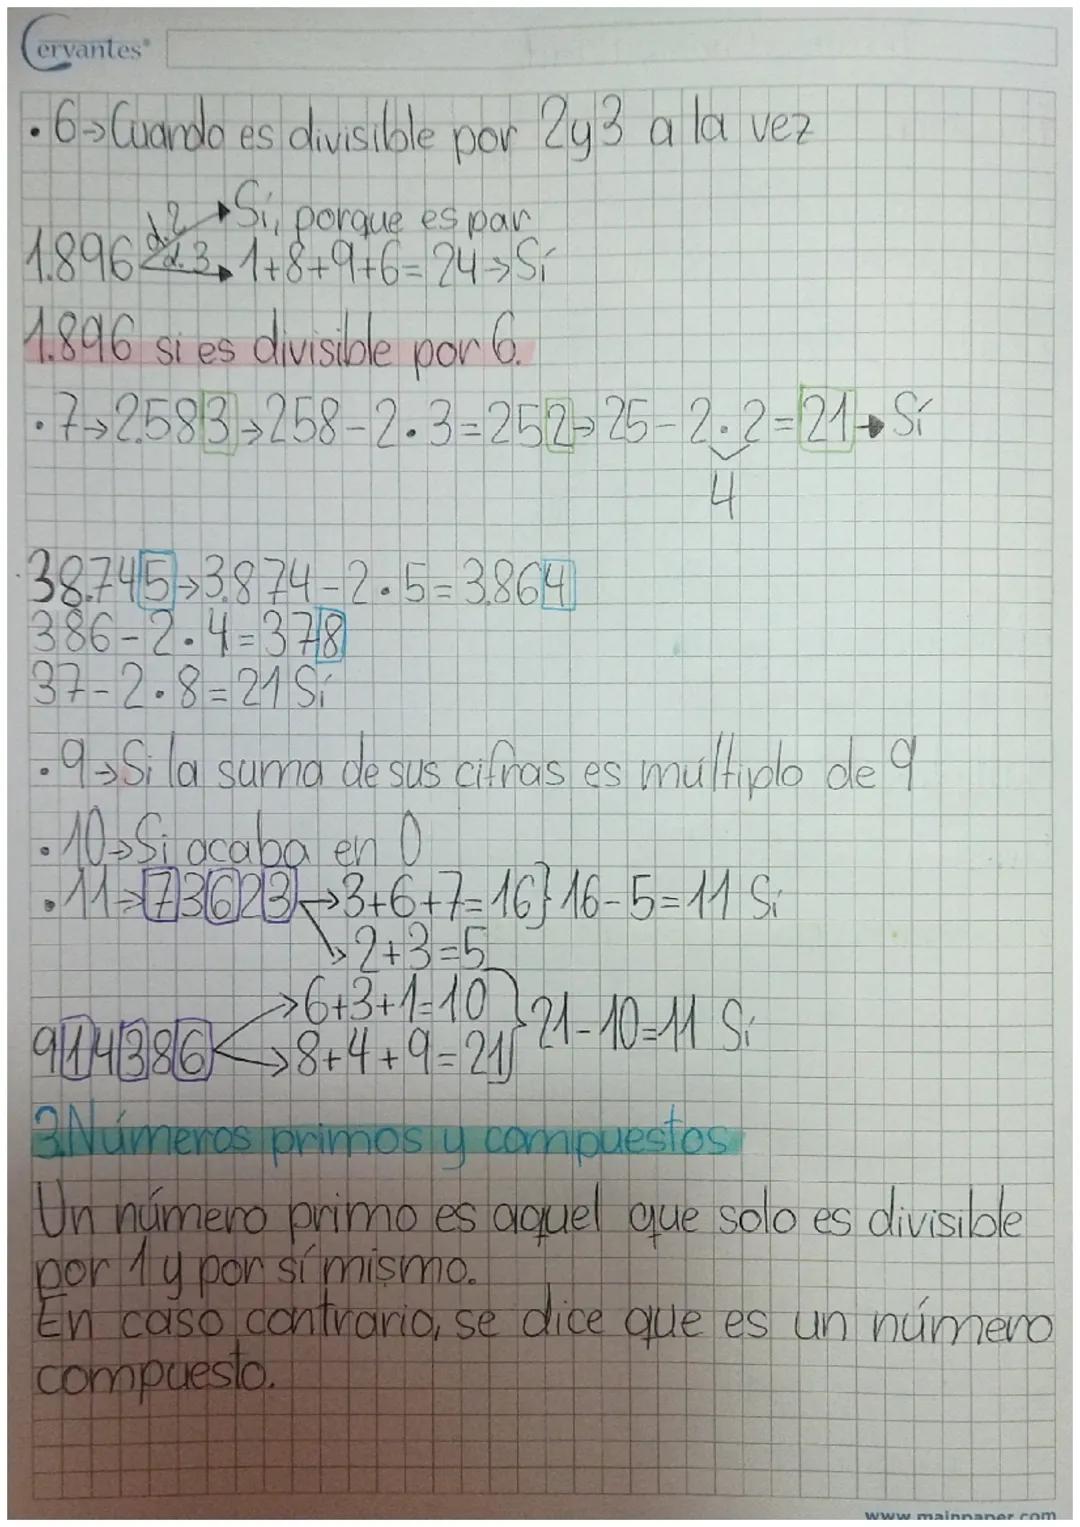 Cervantes®
• 6→Cuando es divisible por 2y3 a la vez
d.2 →Sí, porque es par
1.896 d.3→ 1+8+9+6=24→Sí
1.896 si es divisible por 6.
• 7→2.583→258-2·3=252→25-2·2=21→Sí
4
38.745→3.874-2·5=3.864
386-2·4=378
37-2·8=21 Sí
• 9→Si la suma de sus cifras es múltiplo de 9
• 10→Si acaba en 0
• 11→73623→3+6+7=16} 16-5=11 Sí
→2+3=5
→6+3+1=10
914386 } 21-10=11 Sí
→8+4+9=21
3.Números primos y compuestos
Un número primo es aquel que solo es divisible
por 1 y por sí mismo.
En caso contrario, se dice que es un número
compuesto.
www.mainpaper.com